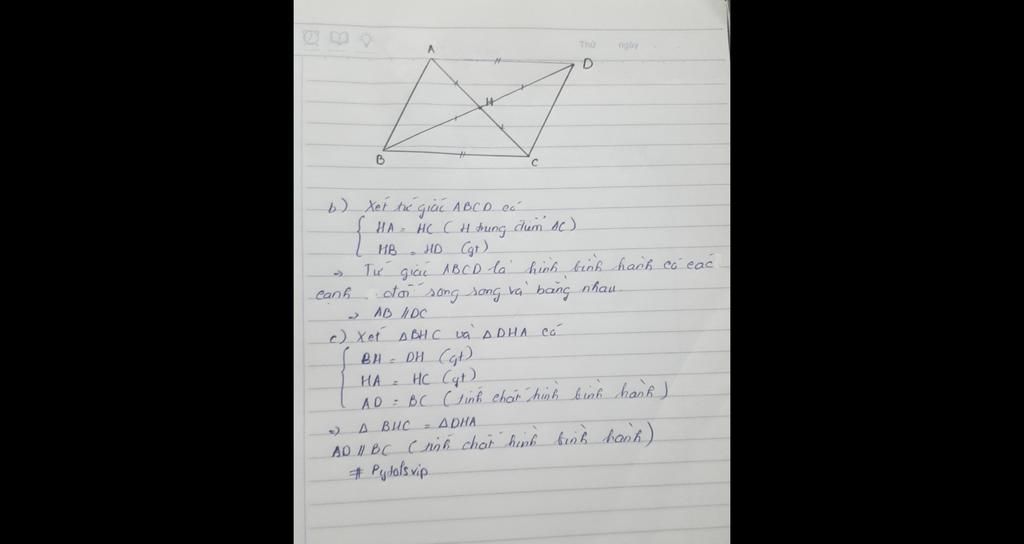 Thứ ngày
A
D
H
B
C
b) Xét tứ giác ABCD có
HA = HC ( H trung điểm AC)
HB = HD (gt)
⇒ Tứ giác ABCD là hình bình hành có các
cạnh đối song song và bằng nhau.
⇒ AB // DC
c) Xét ΔBHC và ΔDHA có
BH = DH (gt)
HA = HC (gt)
AD = BC (tính chất hình bình hành)
⇒ Δ BHC = ΔDHA
AD // BC (tính chất hình bình hành)